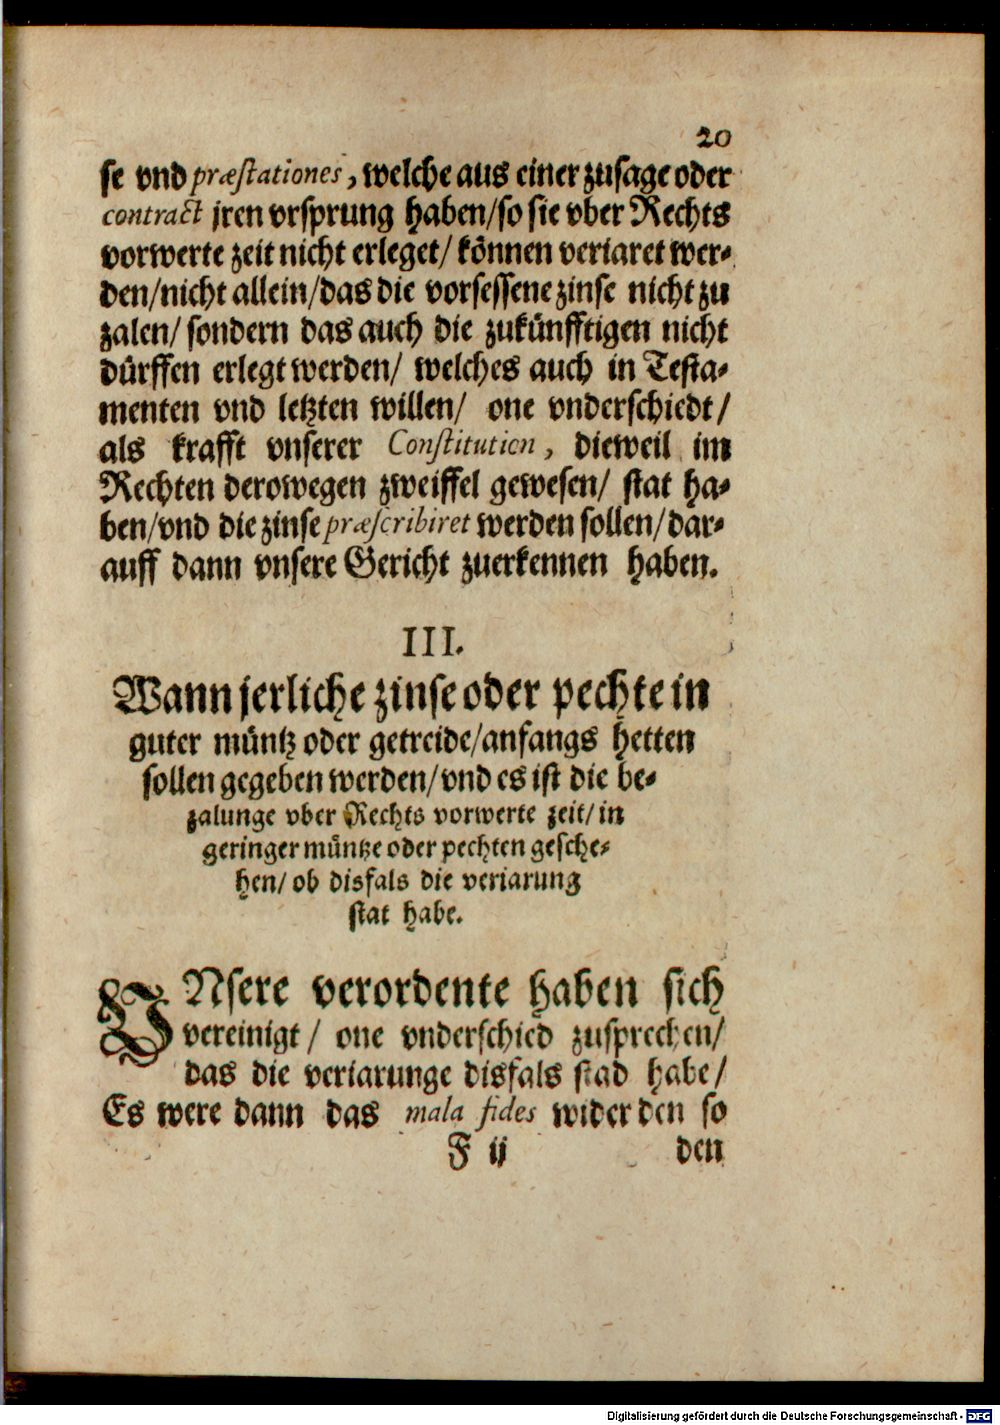 20
se vnd præstationes, welche aus einer zusage oder
contract jren vrsprung haben/so sie vber Rechts
vorwerte zeit nicht erleget/ können veriaret wer-
den/nicht allein/das die vorsessene zinse nicht zu
zalen/ sondern das auch die zukünfftigen nicht
dürffen erlegt werden/ welches auch in Testa-
menten vnd letzten willen/ one vnderschiedt/
als krafft vnserer Constitution, dieweil im
Rechten derowegen zweiffel gewesen/ stat ha-
ben/vnd die zinse præscribiret werden sollen/dar-
auff dann vnsere Gericht zuerkennen haben.
III.
Wann jerliche zinse oder pechte in
guter müntz oder getreide/anfangs hetten
sollen gegeben werden/vnd es ist die be-
zalunge vber Rechts vorwerte zeit/in
geringer müntze oder pechten gesche-
hen/ ob disfals die veriarung
stat habe.
VNsere verordente haben sich
vereinigt/ one vnderschied zusprechen/
das die veriarunge disfals stad habe/
Es were dann das mala fides wider den so
F ij den
Digitalisierung gefördert durch die Deutsche Forschungsgemeinschaft - DFG